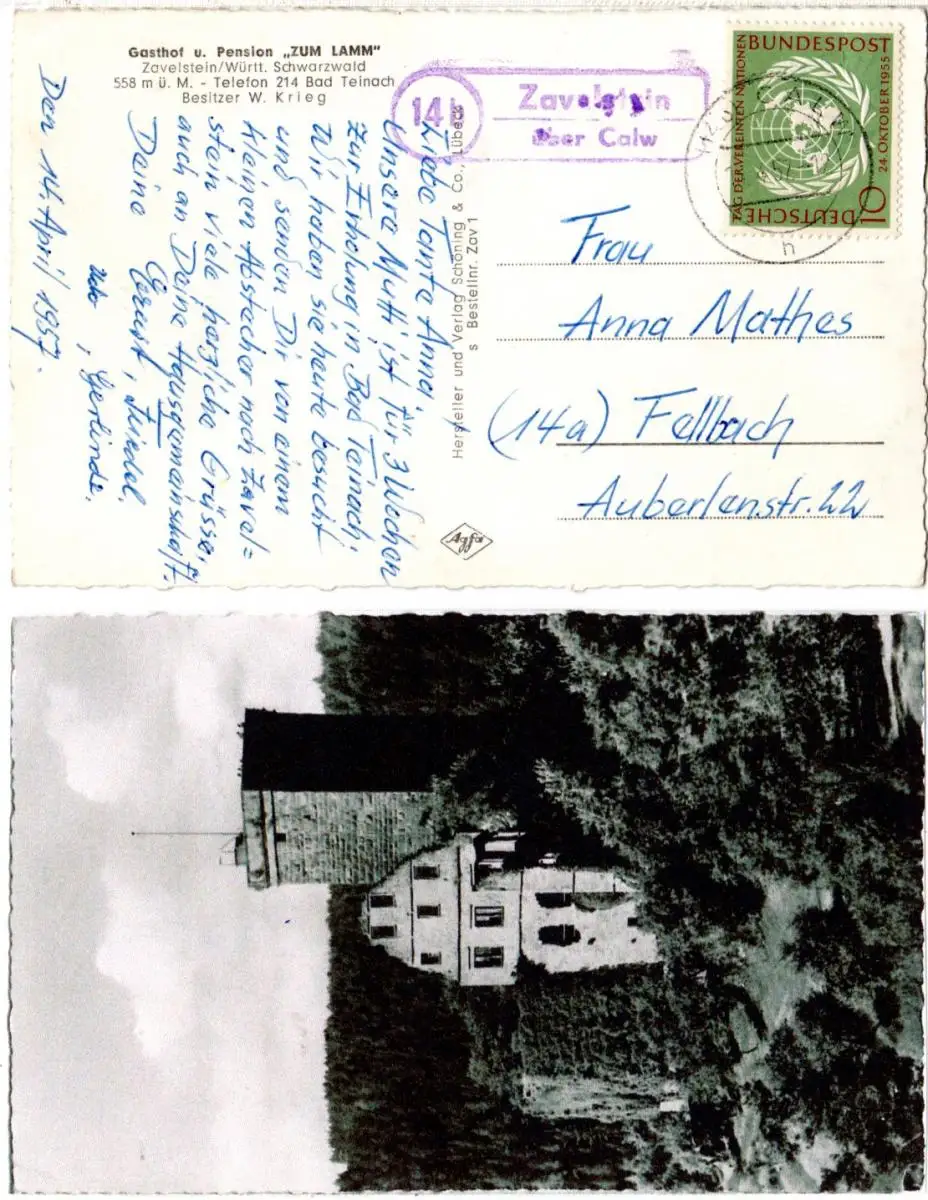 Gasthof u. Pension „ZUM LAMM"
Zavelstein/Württ. Schwarzwald
558 m ü. M. - Telefon 214 Bad Teinach
Besitzer W. Krieg
14b
Zavelstein
über Calw
BUNDESPOST
TAG DER VEREINTEN NATIONEN
24. OKTOBER 1955
DEUTSCHE
10
CALW
h
Den 14. April 1957.
Liebe Tante Anna,
Unsere Mutti ist für 3 Wochen
zur Erholung in Bad Teinach.
Wir haben sie heute besucht
und senden Dir von einem
kleinen Abstecher nach Zavel=
stein viele herzliche Grüsse,
auch an Deine Hausgemeinschaft.
Deine Gernst, Friedel,
Gerlinde.
Hersteller und Verlag Schöning & Co., Lübeck
s Bestellnr. Zav 1
Agfa
Frau
Anna Mathes
(14a) Fellbach
Auberlenstr. 22